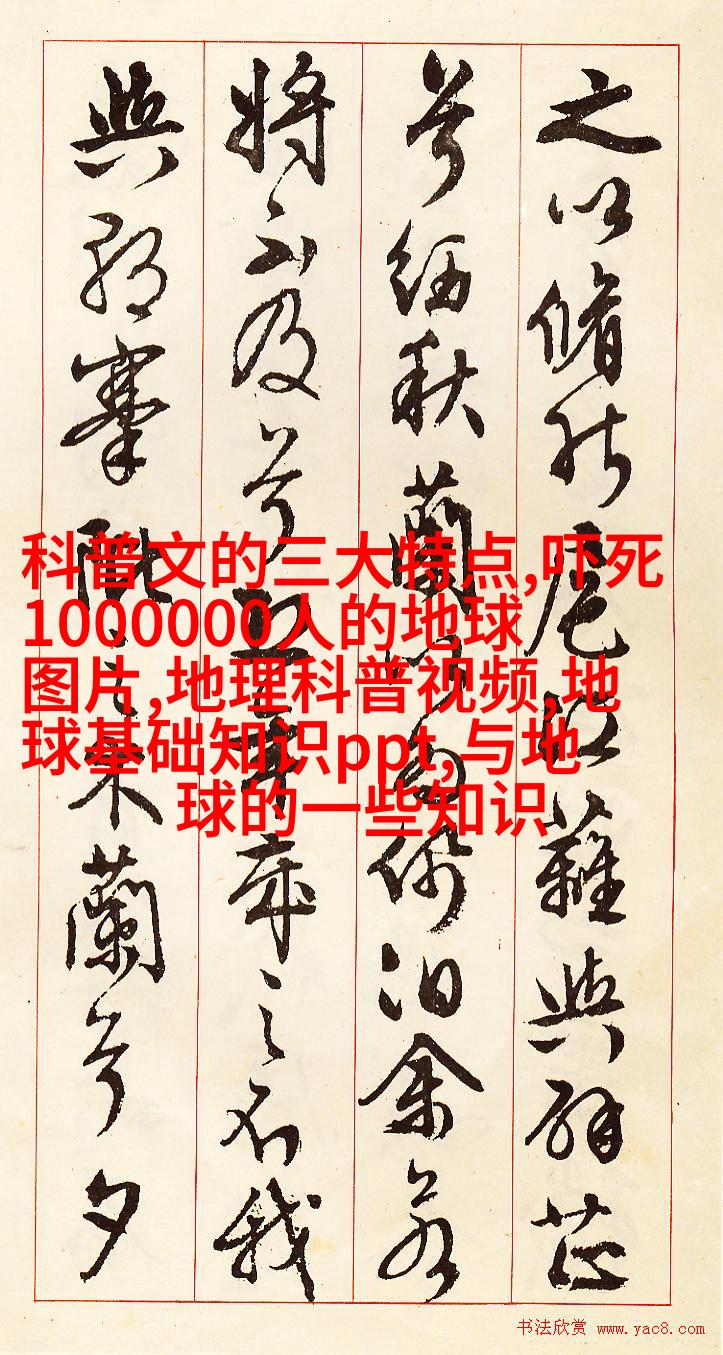 之以脩能扈江蘺與辟芷
兮紉秋蘭以為佩汩余若
將不及兮恐年歲之不我
與朝搴阰之木蘭兮夕
科普文的三大特点,吓死
1000000人的地球
图片,地理科普视频,地
球基础知识ppt,与地
球的一些知识
书法欣赏 www.yac8.com